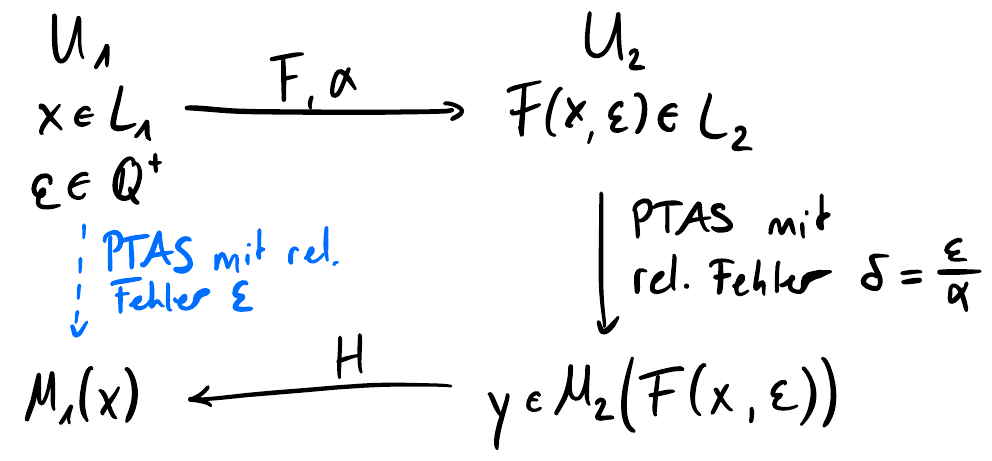 U₁
U₂
F, α
x ∈ L₁
F(x, ε) ∈ L₂
ε ∈ ℚ⁺
PTAS mit rel.
Fehler ε
PTAS mit
rel. Fehler δ = ε/α
H
M₁(x)
y ∈ M₂(F(x, ε))